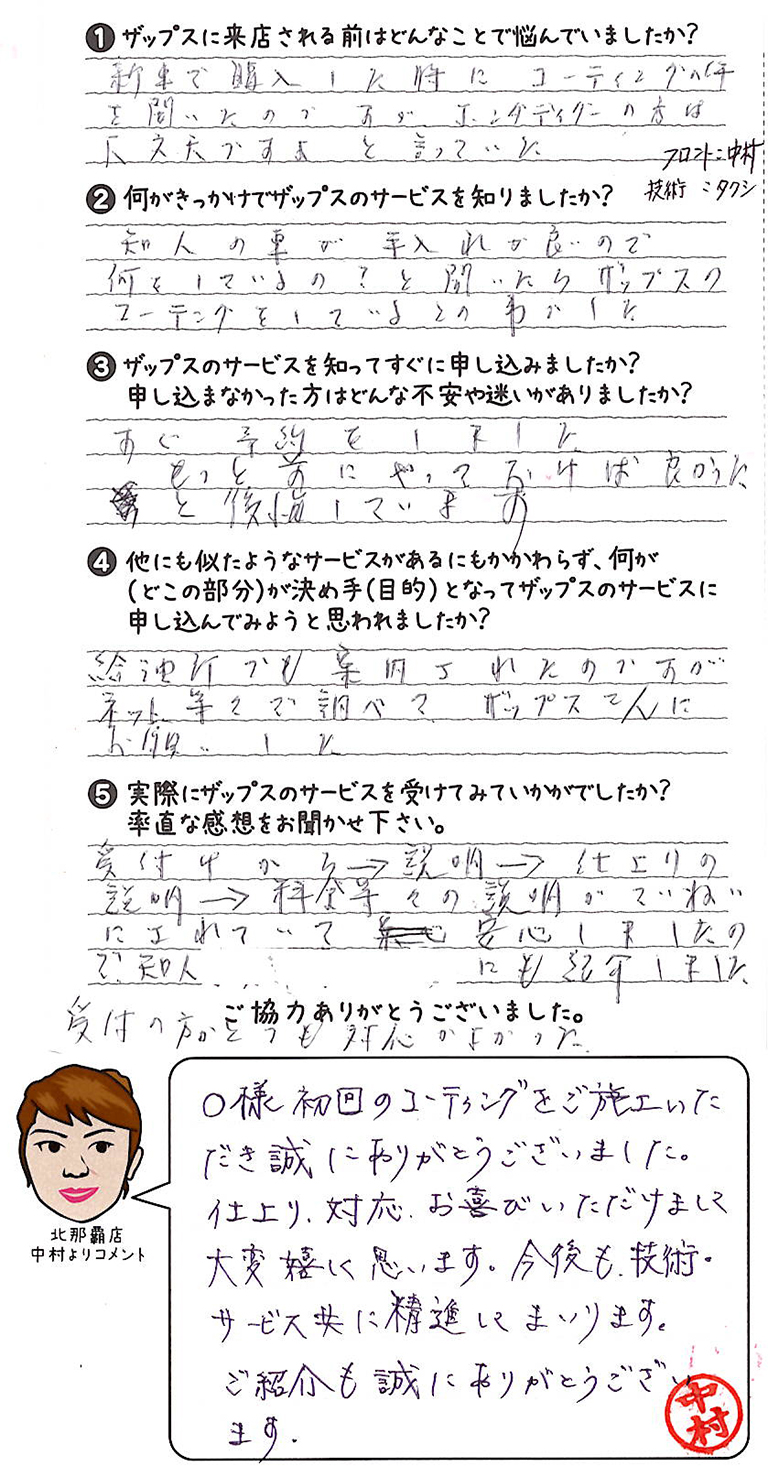 ❶ ザップスに来店される前はどんなことで悩んでいましたか?
新車で購入した時にコーティングの件
を聞いたのですが ホンダディーラーの方は
大丈夫ですよ と言っていた
フロント:中村
技術:タクシ
❷ 何がきっかけでザップスのサービスを知りましたか?
知人の車が手入れが良いので
何をしているの?と聞いたらザップスの
コーティングをしているとの事でした
❸ ザップスのサービスを知ってすぐに申し込みましたか?
申し込まなかった方はどんな不安や迷いがありましたか?
すぐ予約をしました
もっと前にやっておけば良かった
と後悔しています
❹ 他にも似たようなサービスがあるにもかかわらず、何が
(どこの部分)が決め手(目的)となってザップスのサービスに
申し込んでみようと思われましたか?
給油所でも案内されたのですが
ネット等々で調べて ザップスさんに
お願いした
❺ 実際にザップスのサービスを受けてみていかがでしたか?
率直な感想をお聞かせ下さい。
受付けから→説明→仕上りの
説明→料金等々の説明がていねい
にされていて 安心しましたの
で、知人 にも紹介しました
ご協力ありがとうございました。
受付の方がとても対応がよかった
○様 初回のコーティングをご施工いた
だき誠にありがとうございました。
仕上り、対応、お喜びいただけまして
大変嬉しく思います。今後も、技術・
サービス共に精進してまいります。
ご紹介も誠にありがとうござい
ます.
北那覇店
中村よりコメント
中村